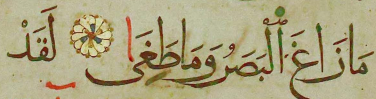 مَا زَاغَ ٱلْبَصَرُ وَمَا طَغَىٰ ۝ لَقَدْ